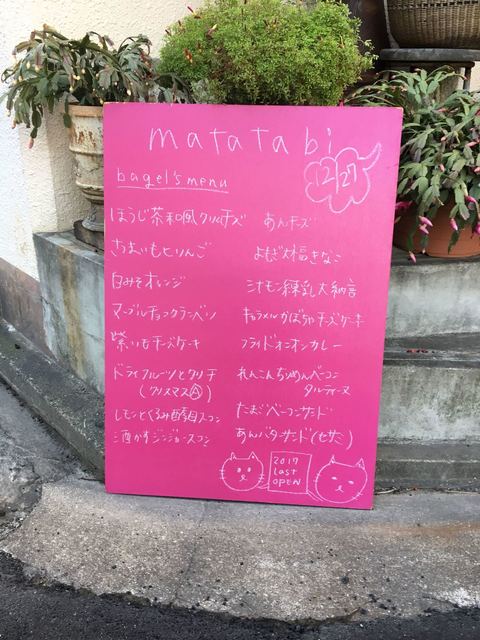 matatabi
12/27
bagel's menu
ほうじ茶和風クリームチーズ
さつまいもとりんご
白みそオレンジ
マーブルチョコクランベリー
紫いもチーズケーキ
ドライフルーツとクリチ
(クリスマスA)
レモンとくるみ酵母スコーン
酒かすジンジャースコーン
あんチーズ
よもぎ大福きなこ
シナモン練乳大納言
キャラメルかぼちゃチーズケーキ
フライドオニオンカレー
れんこんちりめんベーコン
タルティーヌ
たまごベーコンサンド
あんバターサンド(セサミ)
2017
Last
OPEN